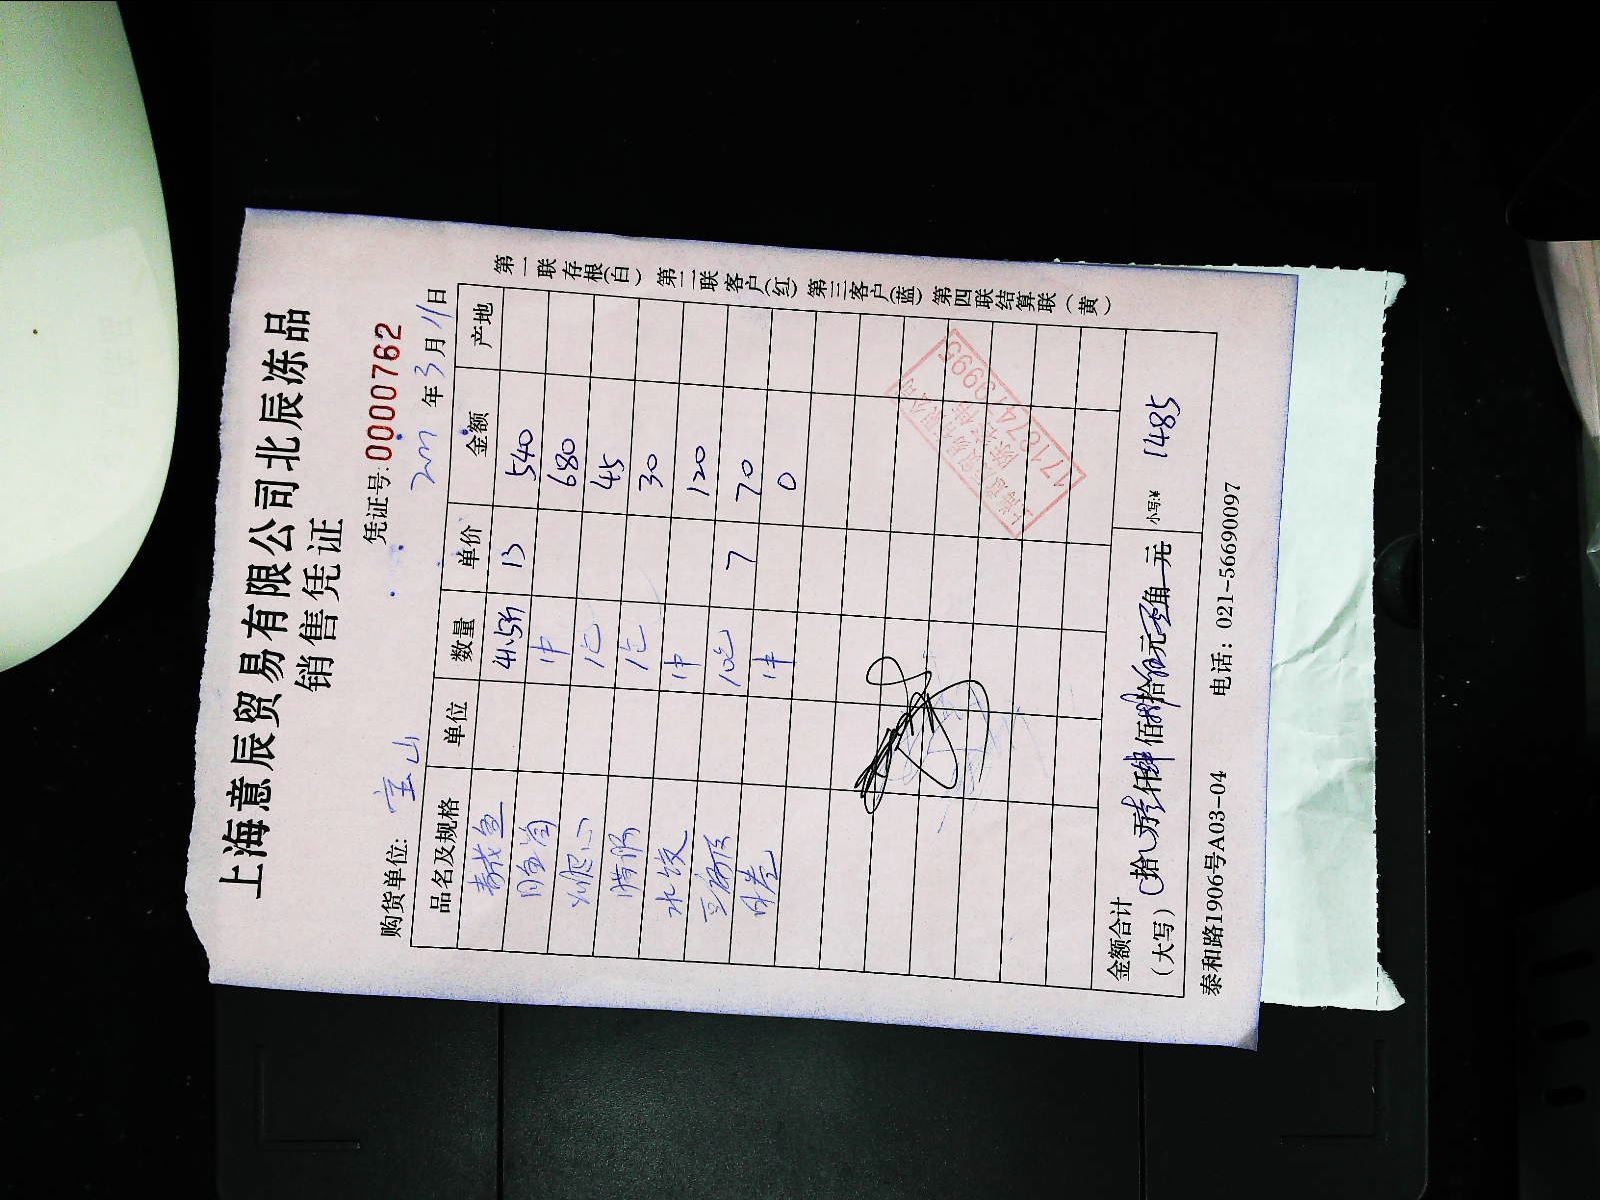 上海意辰贸易有限公司北辰冻品
销售凭证
凭证号:0000762
购货单位: 宝山 年 3 月 11 日
品名及规格 单位 数量 单价 金额 产地
41.5斤 13 540
1件 680
1包 45
1包 30
水饺 1件 120
豆腐皮 10包 7 70
1件 0
金额合计
(大写) (拾 万壹仟肆佰捌拾伍元 角 元 小写:¥ 1485
泰和路1906号A03-04 电话: 021-56690097
第一联存根(白) 第二联客户(红) 第三客户(蓝) 第四联结算联(黄)